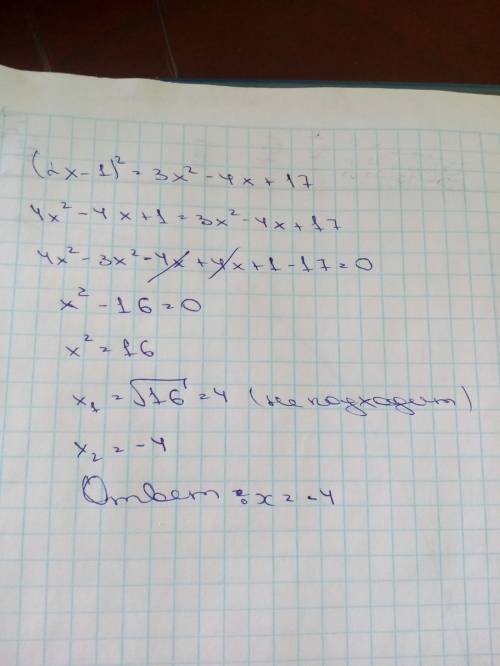 (2x-1)² = 3x² - 4x + 17
4x² - 4x + 1 = 3x² - 4x + 17
4x² - 3x² - 4x + 4x + 1 - 17 = 0
x² - 16 = 0
x² = 16
x₁ = √16 = 4 (не подходит)
x₂ = -4
Ответ: x = -4